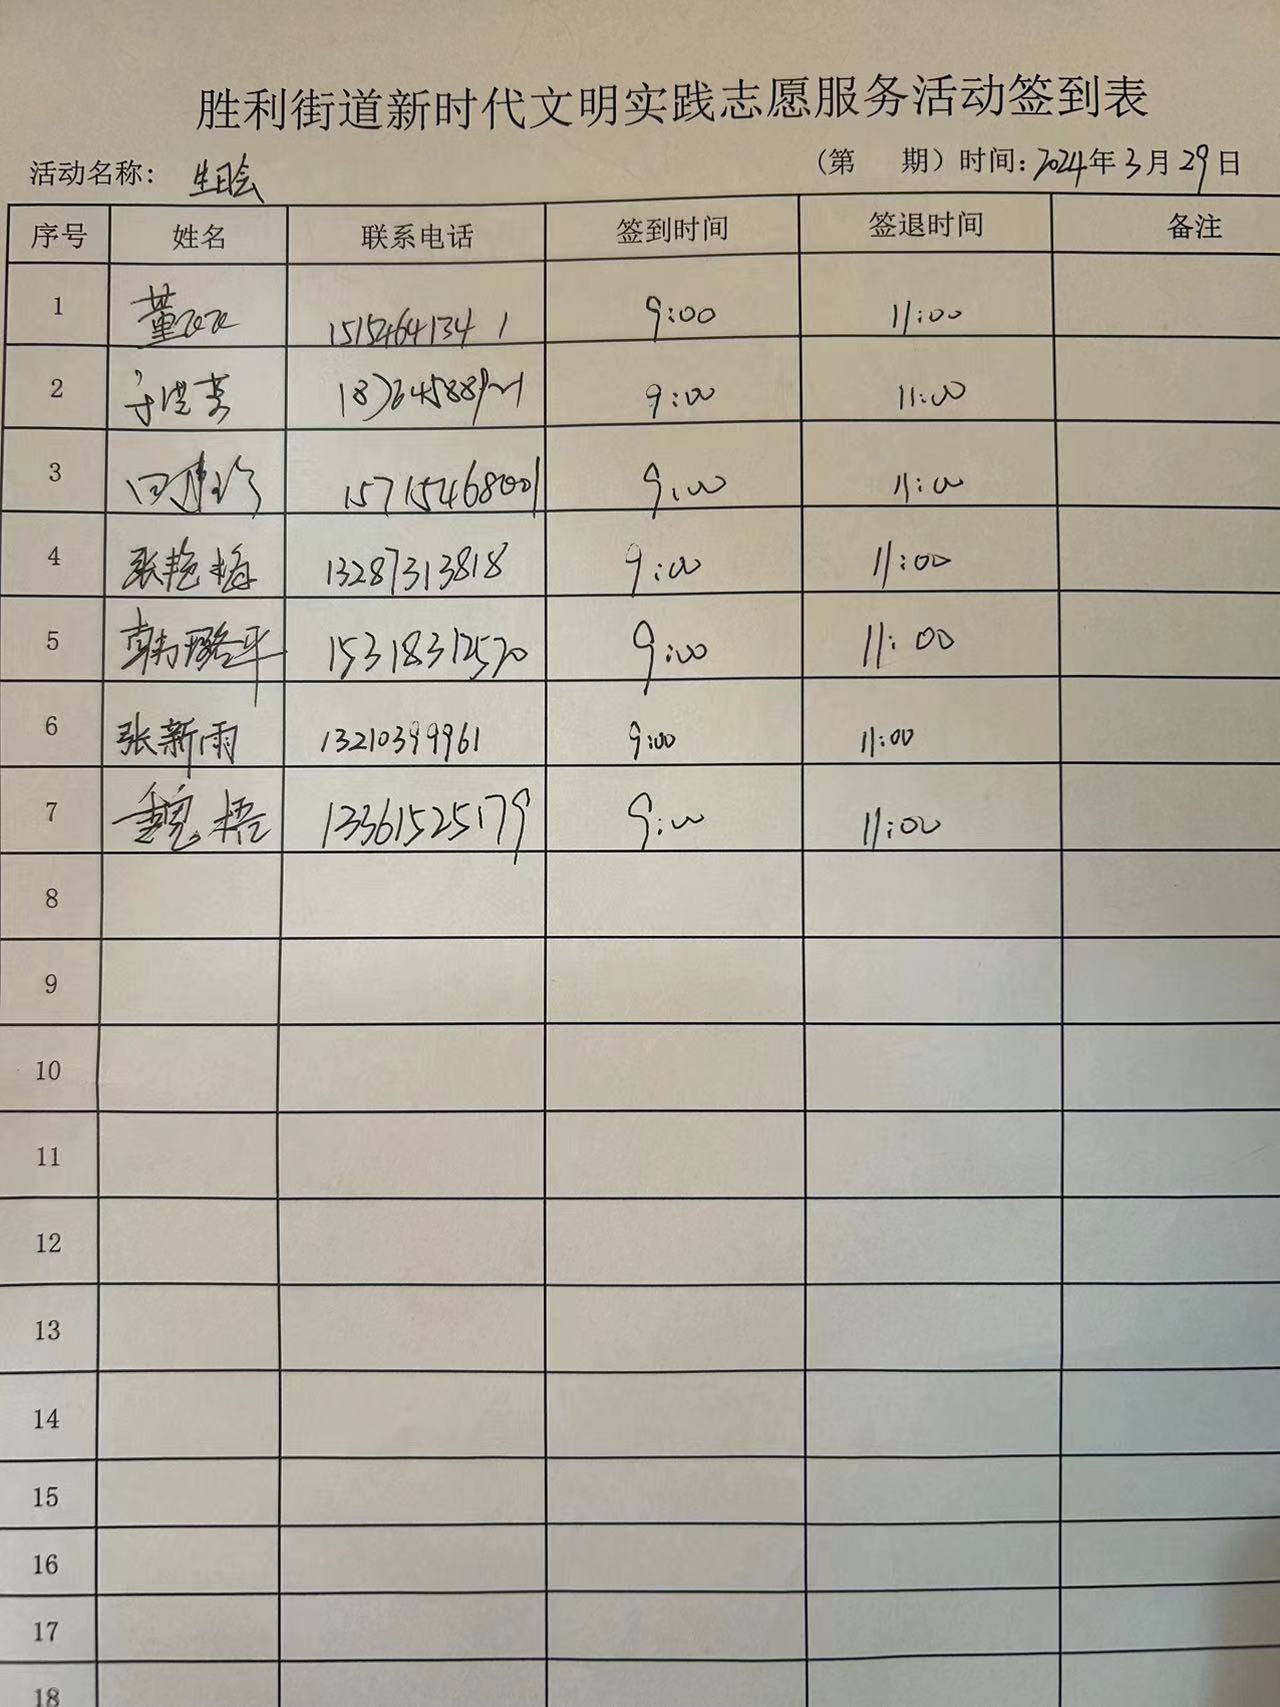 胜利街道新时代文明实践志愿服务活动签到表
活动名称： 生日会 （第 期）时间：2024年3月29日
序号 姓名 联系电话 签到时间 签退时间 备注
1 董 15154641341 9:00 11:00
2 于洪芳 9:00 11:00
3 15715468001 9:00 11:00
4 张艳梅 13287313818 9:00 11:00
5 韩璐平 15318312570 9:00 11:00
6 张新雨 13210399961 9:00 11:00
7 魏梧 13361525179 9:00 11:00
8
9
10
11
12
13
14
15
16
17
18